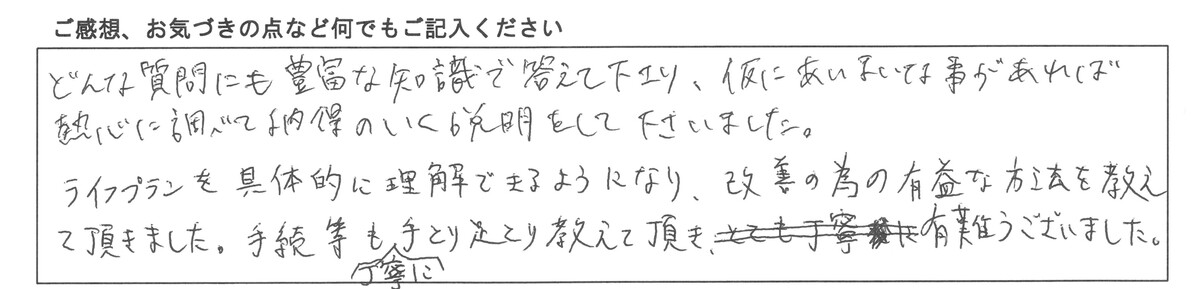 ご感想、お気づきの点など何でもご記入ください
どんな質問にも豊富な知識で答えて下さり、仮にあいまいな事があれば
熱心に調べて納得のいく説明をして下さいました。
ライフプランを具体的に理解できるようになり、改善の為の有益な方法を教え
て頂きました。手続等も丁寧に手とり足とり教えて頂き、とても丁寧に有難うございました。